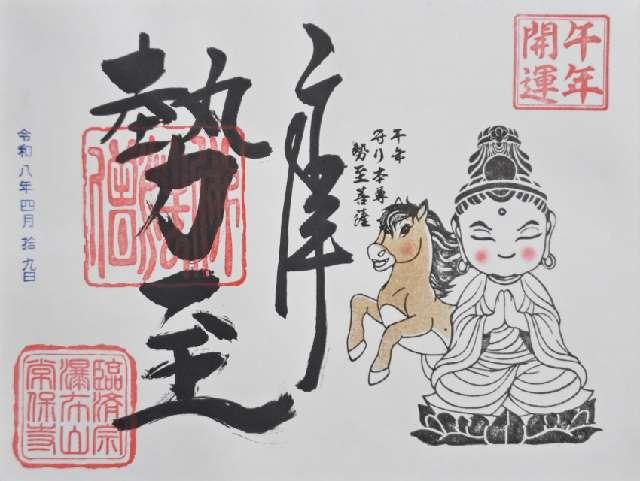 午年
開運
奉拝
勢至
午年
守り本尊
勢至菩薩
令和八年四月拾九日
佛法僧寳
臨済宗
瀑布山
常保寺